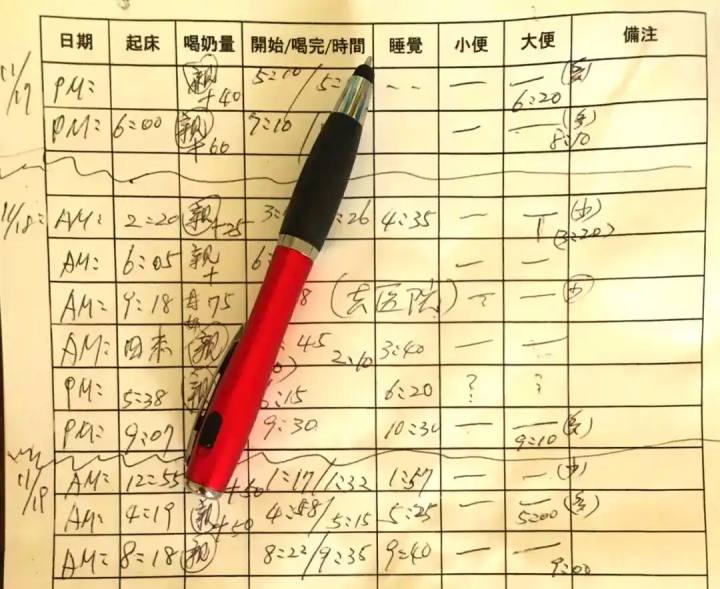 日期 起床 喝奶量 開始/喝完/時間 睡覺 小便 大便 備注
11/17 PM: 親 +40 5:10/5: -- — — 6:20 (多)
PM: 6:00 親 +60 7:10/ — — 8:10 (多)
11/18: AM: 2:20 親 +25 3: :26 4:35 — (少) (3:20)
AM: 6:05 親 + 6: — —
AM: 9:18 母奶 75 8 (去医院) — — (少)
AM: 回来 親 :45 2:10 3:40 — —
PM: 5:38 親 :15 6:20 ? ?
PM: 9:07 9:30 10:30 — — 9:10 (多)
11/19 AM: 12:55 +50 1:17/1:32 1:57 — — (少)
AM: 4:19 親 +50 4:58/5:15 5:25 — — 5:00 (多)
AM: 8:18 親 8:22/9:35 9:40 — — 9:00